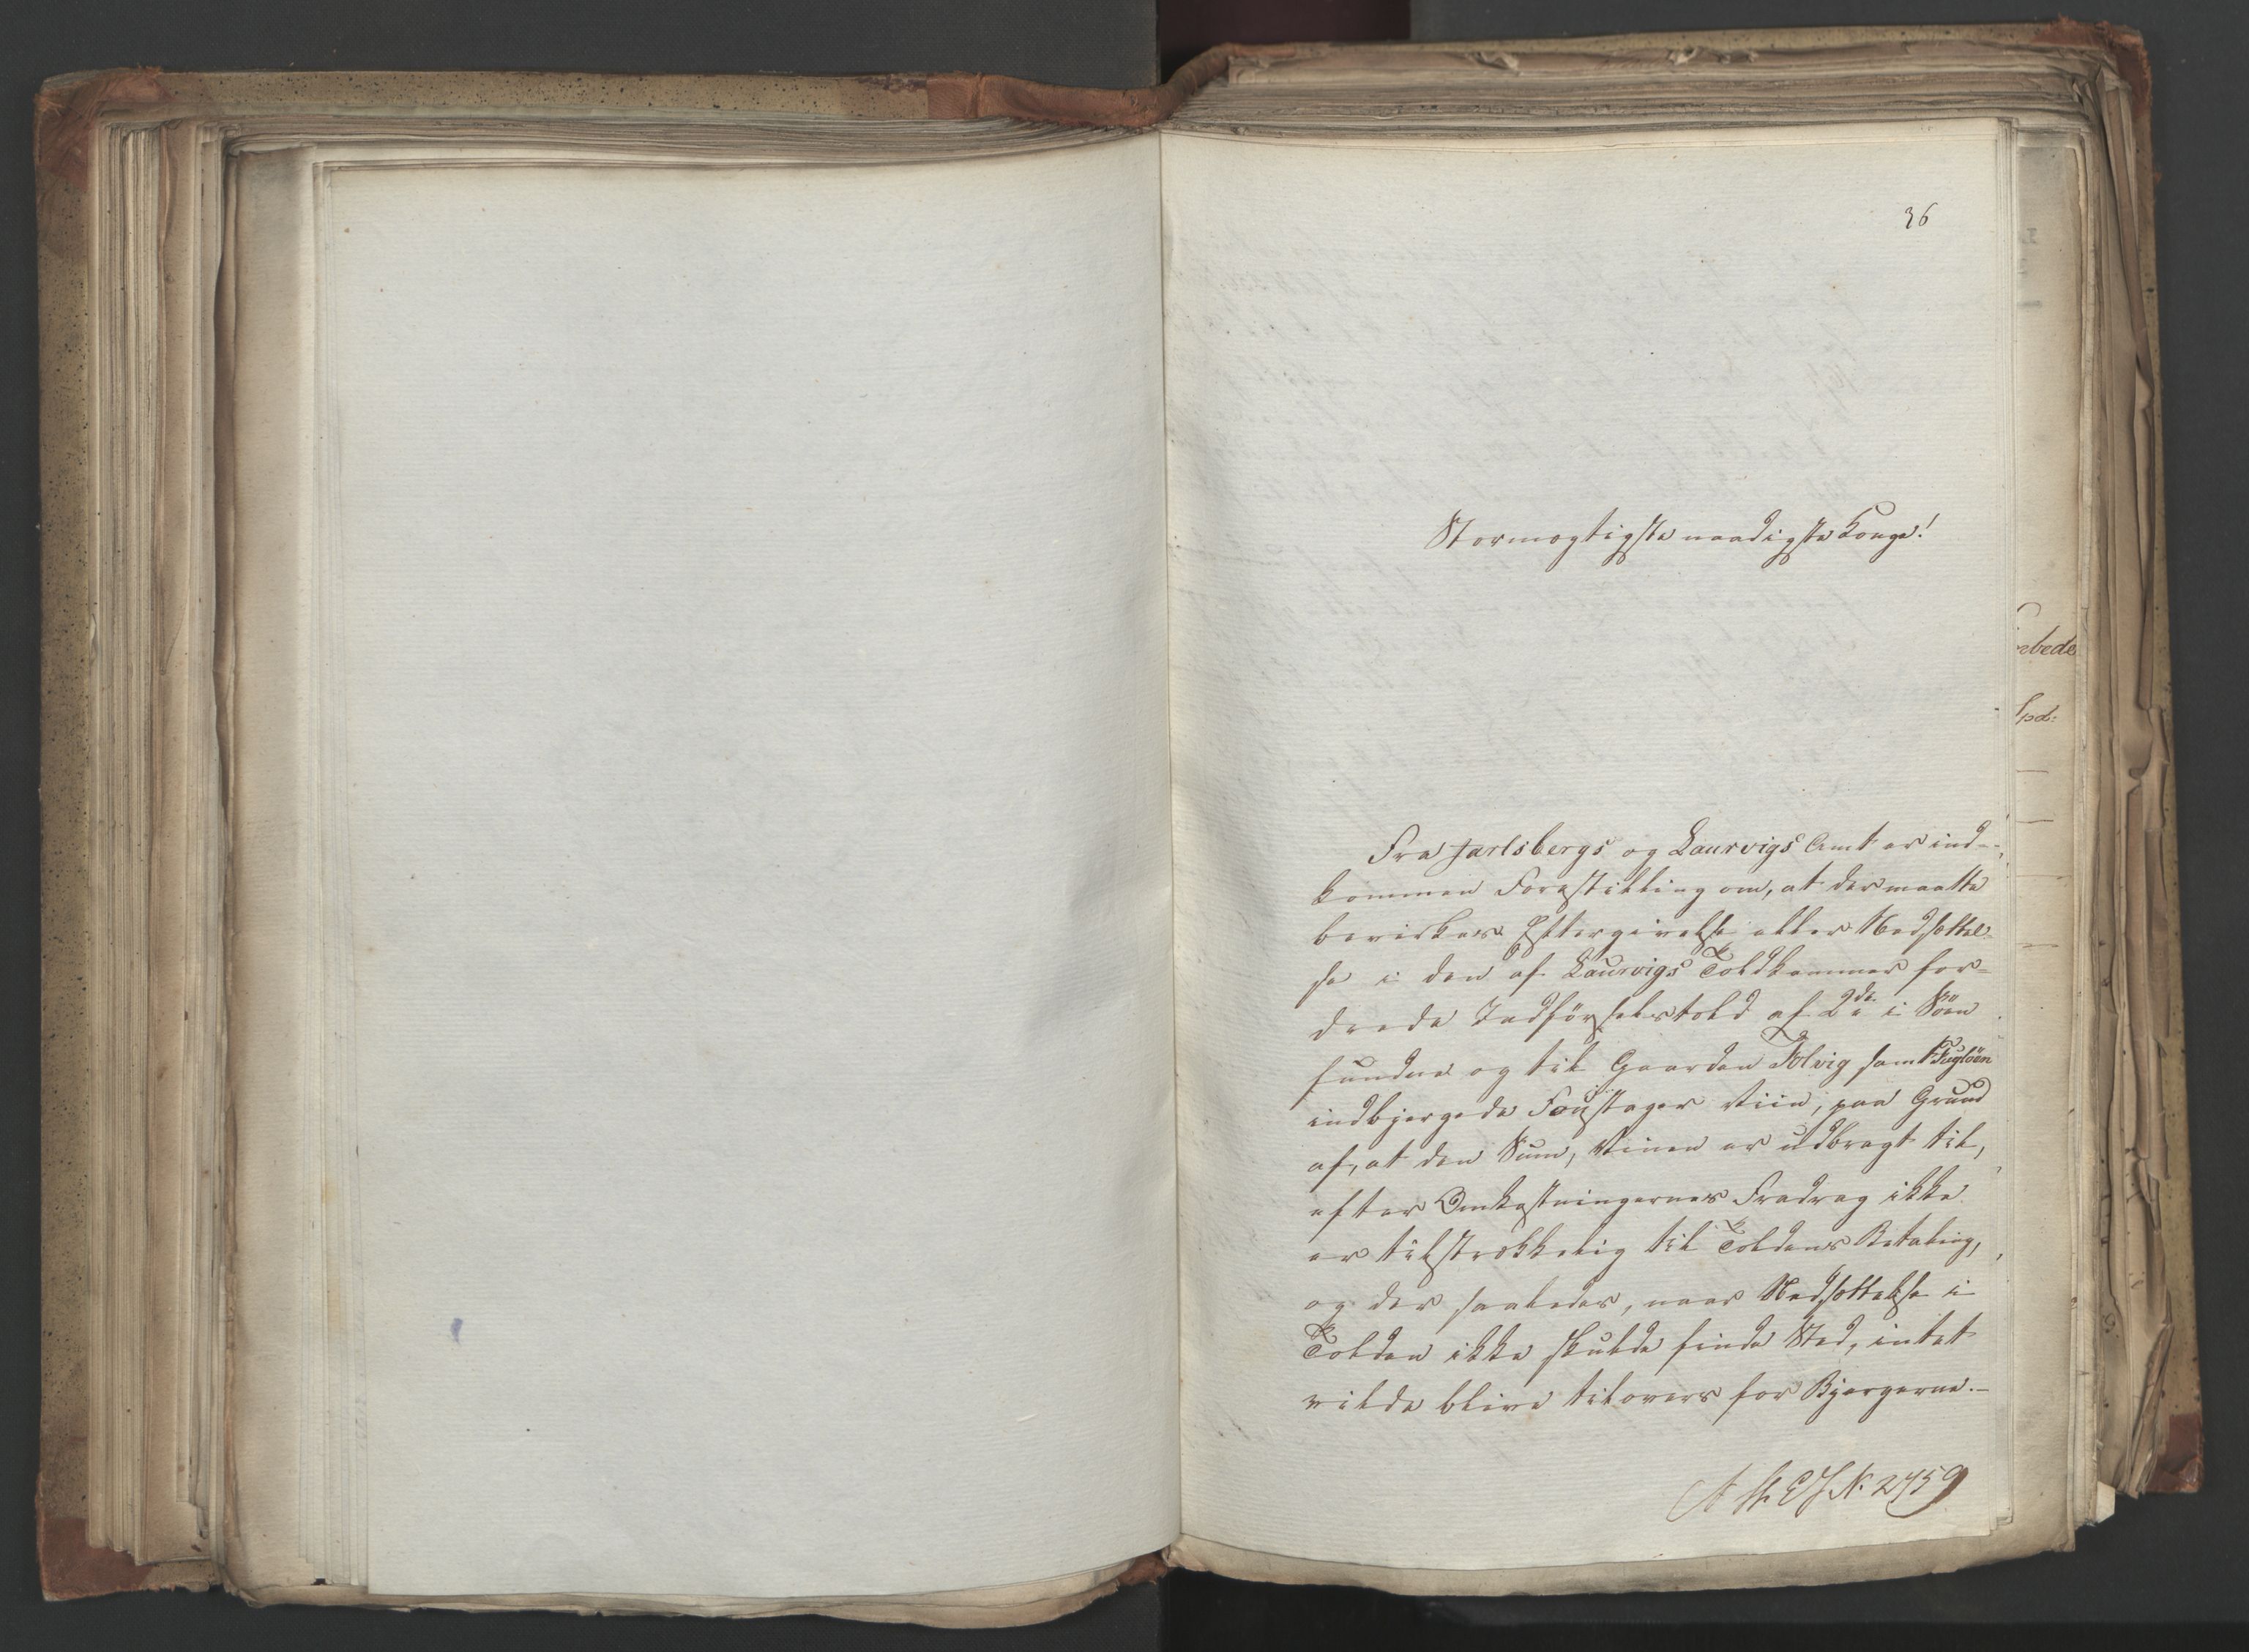 36
Stormægtigste naadigste Konge!
Fra Jarlsbergs og Laurvigs Amt er ind-
kommen Forestilling om, at der maatte
bevirkes Eftergivelse eller Nedsættel-
se i den af Laurvigs Toldkammer for-
drede Indførselstold af 2de i Søen
fundne og til Gaarden Følvig samt Fugløen
indbjergede Foustager Viin, paa Grund
af, at den Sum, Vinen er udbragt til,
efter Omkostningernes Fradrag ikke
er tilstrækkelig til Toldens Betaling,
og der saaledes, naar Nedsættelse i
Tolden ikke skulde finde Sted, intet
vilde blive tilovers for Bjergerne.-
N: 2759
bede
Spd: